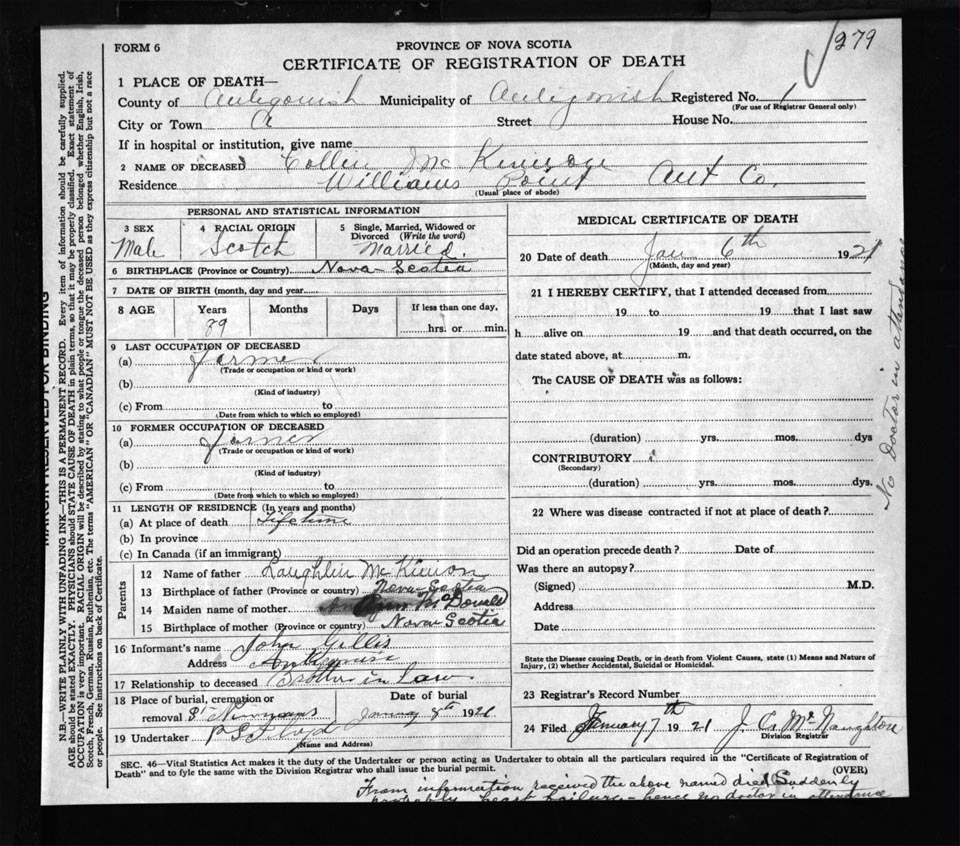 279
FORM 6
PROVINCE OF NOVA SCOTIA
CERTIFICATE OF REGISTRATION OF DEATH
1 PLACE OF DEATH—
County of Antigonish Municipality of Antigonish Registered No. 1
(For use of Registrar General only)
City or Town Street House No.
If in hospital or institution, give name
2 NAME OF DECEASED Collin Mc Kinnon
Residence Williams Point Ant Co.
(Usual place of abode)
PERSONAL AND STATISTICAL INFORMATION
3 SEX Male
4 RACIAL ORIGIN Scotch
5 Single, Married, Widowed or Divorced (Write the word) Married.
6 BIRTHPLACE (Province or Country) Nova Scotia
7 DATE OF BIRTH (month, day and year)
8 AGE Years Months Days If less than one day,
hrs. or min.
9 LAST OCCUPATION OF DECEASED
(a) Farmer
(Trade or occupation or kind or work)
(b)
(Kind of industry)
(c) From to
(Date from which to which so employed)
10 FORMER OCCUPATION OF DECEASED
(a) Farmer
(Trade or occupation or kind or work)
(b)
(Kind of industry)
(c) From to
(Date from which to which so employed)
11 LENGTH OF RESIDENCE (In years and months)
(a) At place of death Lifetime
(b) In province
(c) In Canada (if an immigrant)
Parents
12 Name of father Laughlin Mc Kinnon
13 Birthplace of father (Province or country) Nova Scotia
14 Maiden name of mother Ann McDonald
15 Birthplace of mother (Province or country) Nova Scotia
16 Informant's name John Gillis
Address
17 Relationship to deceased Brother in law
18 Place of burial, cremation or Date of burial
removal St Ninians 1921
19 Undertaker
(Name and Address)
MEDICAL CERTIFICATE OF DEATH
20 Date of death Jan 6th 1921
(Month, day and year)
21 I HEREBY CERTIFY, that I attended deceased from
19 to 19 that I last saw
h alive on 19 and that death occurred, on the
date stated above, at m.
The CAUSE OF DEATH was as follows:
(duration) yrs. mos. dys
CONTRIBUTORY
(Secondary)
(duration) yrs. mos. dys.
22 Where was disease contracted if not at place of death?
Did an operation precede death? Date of
Was there an autopsy?
(Signed) M.D.
Address
Date
State the Disease causing Death, or in death from Violent Causes, state (1) Means and Nature of
Injury, (2) whether Accidental, Suicidal or Homicidal.
23 Registrar's Record Number
24 Filed January 7th 1921 J. Mc Naughton
Division Registrar
SEC. 46—Vital Statistics Act makes it the duty of the Undertaker or person acting as Undertaker to obtain all the particulars required in the "Certificate of Registration of
Death" and to fyle the same with the Division Registrar who shall issue the burial permit.
(OVER)
From information received the above named died Suddenly
probably heart failure – hence no doctor in attendance
No Doctor in attendance
MARGIN RESERVED FOR BINDING
N.B.—WRITE PLAINLY WITH UNFADING INK—THIS IS A PERMANENT RECORD. Every item of information should be carefully supplied.
AGE should be stated EXACTLY. PHYSICIANS should STATE CAUSE OF DEATH in plain terms, so that it may be properly classified. Exact statement of
OCCUPATION is very important. RACIAL ORIGIN will be described by stating to what people or tongue the deceased person belonged whether English, Irish,
Scotch, French, German, Russian, Ruthenian, etc. The terms "AMERICAN" OR "CANADIAN" MUST NOT BE USED as they express citizenship but not a race
or people. See instructions on back of Certificate.